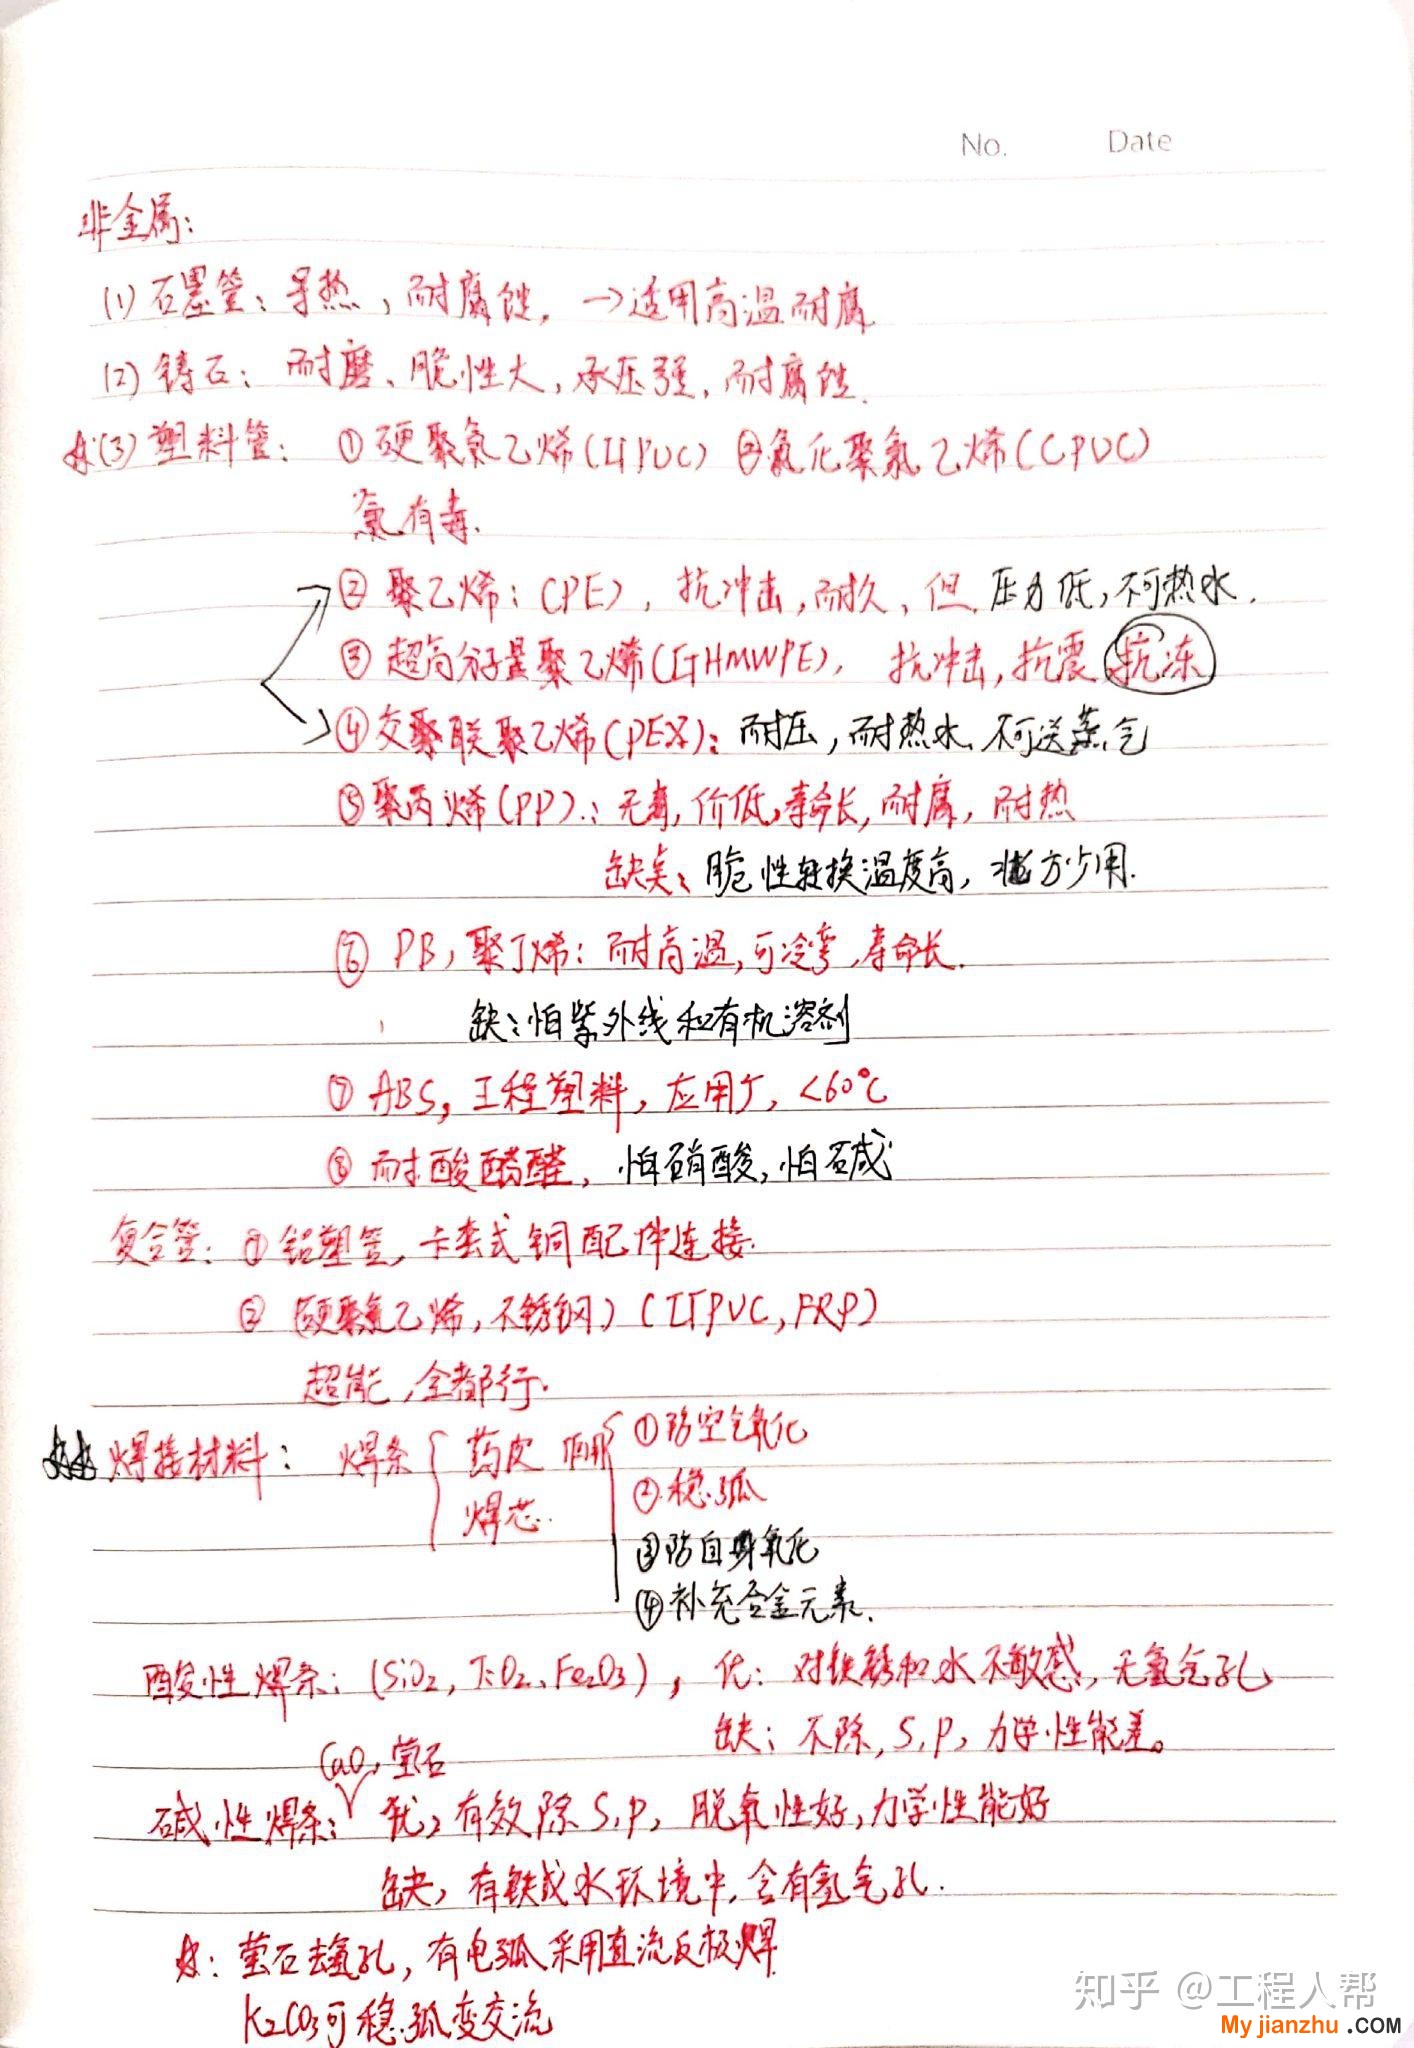 No. Date
非金属:
(1) 石墨管: 导热, 耐腐蚀, →适用高温耐腐
(2) 铸石: 耐磨、脆性大, 承压强, 耐腐蚀.
☆(3) 塑料管: ①硬聚氯乙烯(UPVC) ②氯化聚氯乙烯(CPVC)
氯有毒.
②聚乙烯: (PE), 抗冲击, 耐久, 但 压力低, 不可热水.
③超高分子量聚乙烯(UHMWPE), 抗冲击, 抗震 抗冻
④交聚联聚乙烯(PEX): 耐压, 耐热水, 不可送蒸气
⑤聚丙烯(PP): 无毒, 价低, 寿命长, 耐腐, 耐热
缺点: 脆性转换温度高, 北方少用.
⑥ PB, 聚丁烯: 耐高温, 可冷弯, 寿命长.
缺: 怕紫外线和有机溶剂
⑦ ABS, 工程塑料, 应用广, <60℃
⑧ 耐酸酚醛, 怕硝酸, 怕碱
复合管: ①铝塑管, 卡套式铜配件连接.
② (硬聚氯乙烯, 不锈钢) (UPVC, FRP)
超能, 全都行.
☆☆焊接材料: 焊条 药皮 ①防空气氧化
焊芯. ②稳弧
③防自身氧化
④补充合金元素.
酸性焊条: (SiO₂, TiO₂, Fe₂O₃), 优: 对铁锈和水不敏感, 无氢气孔
缺: 不除, S, P, 力学性能差。
CaO, 萤石
碱性焊条: 优, 有效除S, P, 脱氧性好, 力学性能好
缺, 有铁或水环境中, 会有氢气孔.
☆: 萤石去氢孔, 有电弧采用直流反极焊
K₂CO₃可稳弧变交流
知乎 @工程人帮
Myjianzhu.COM